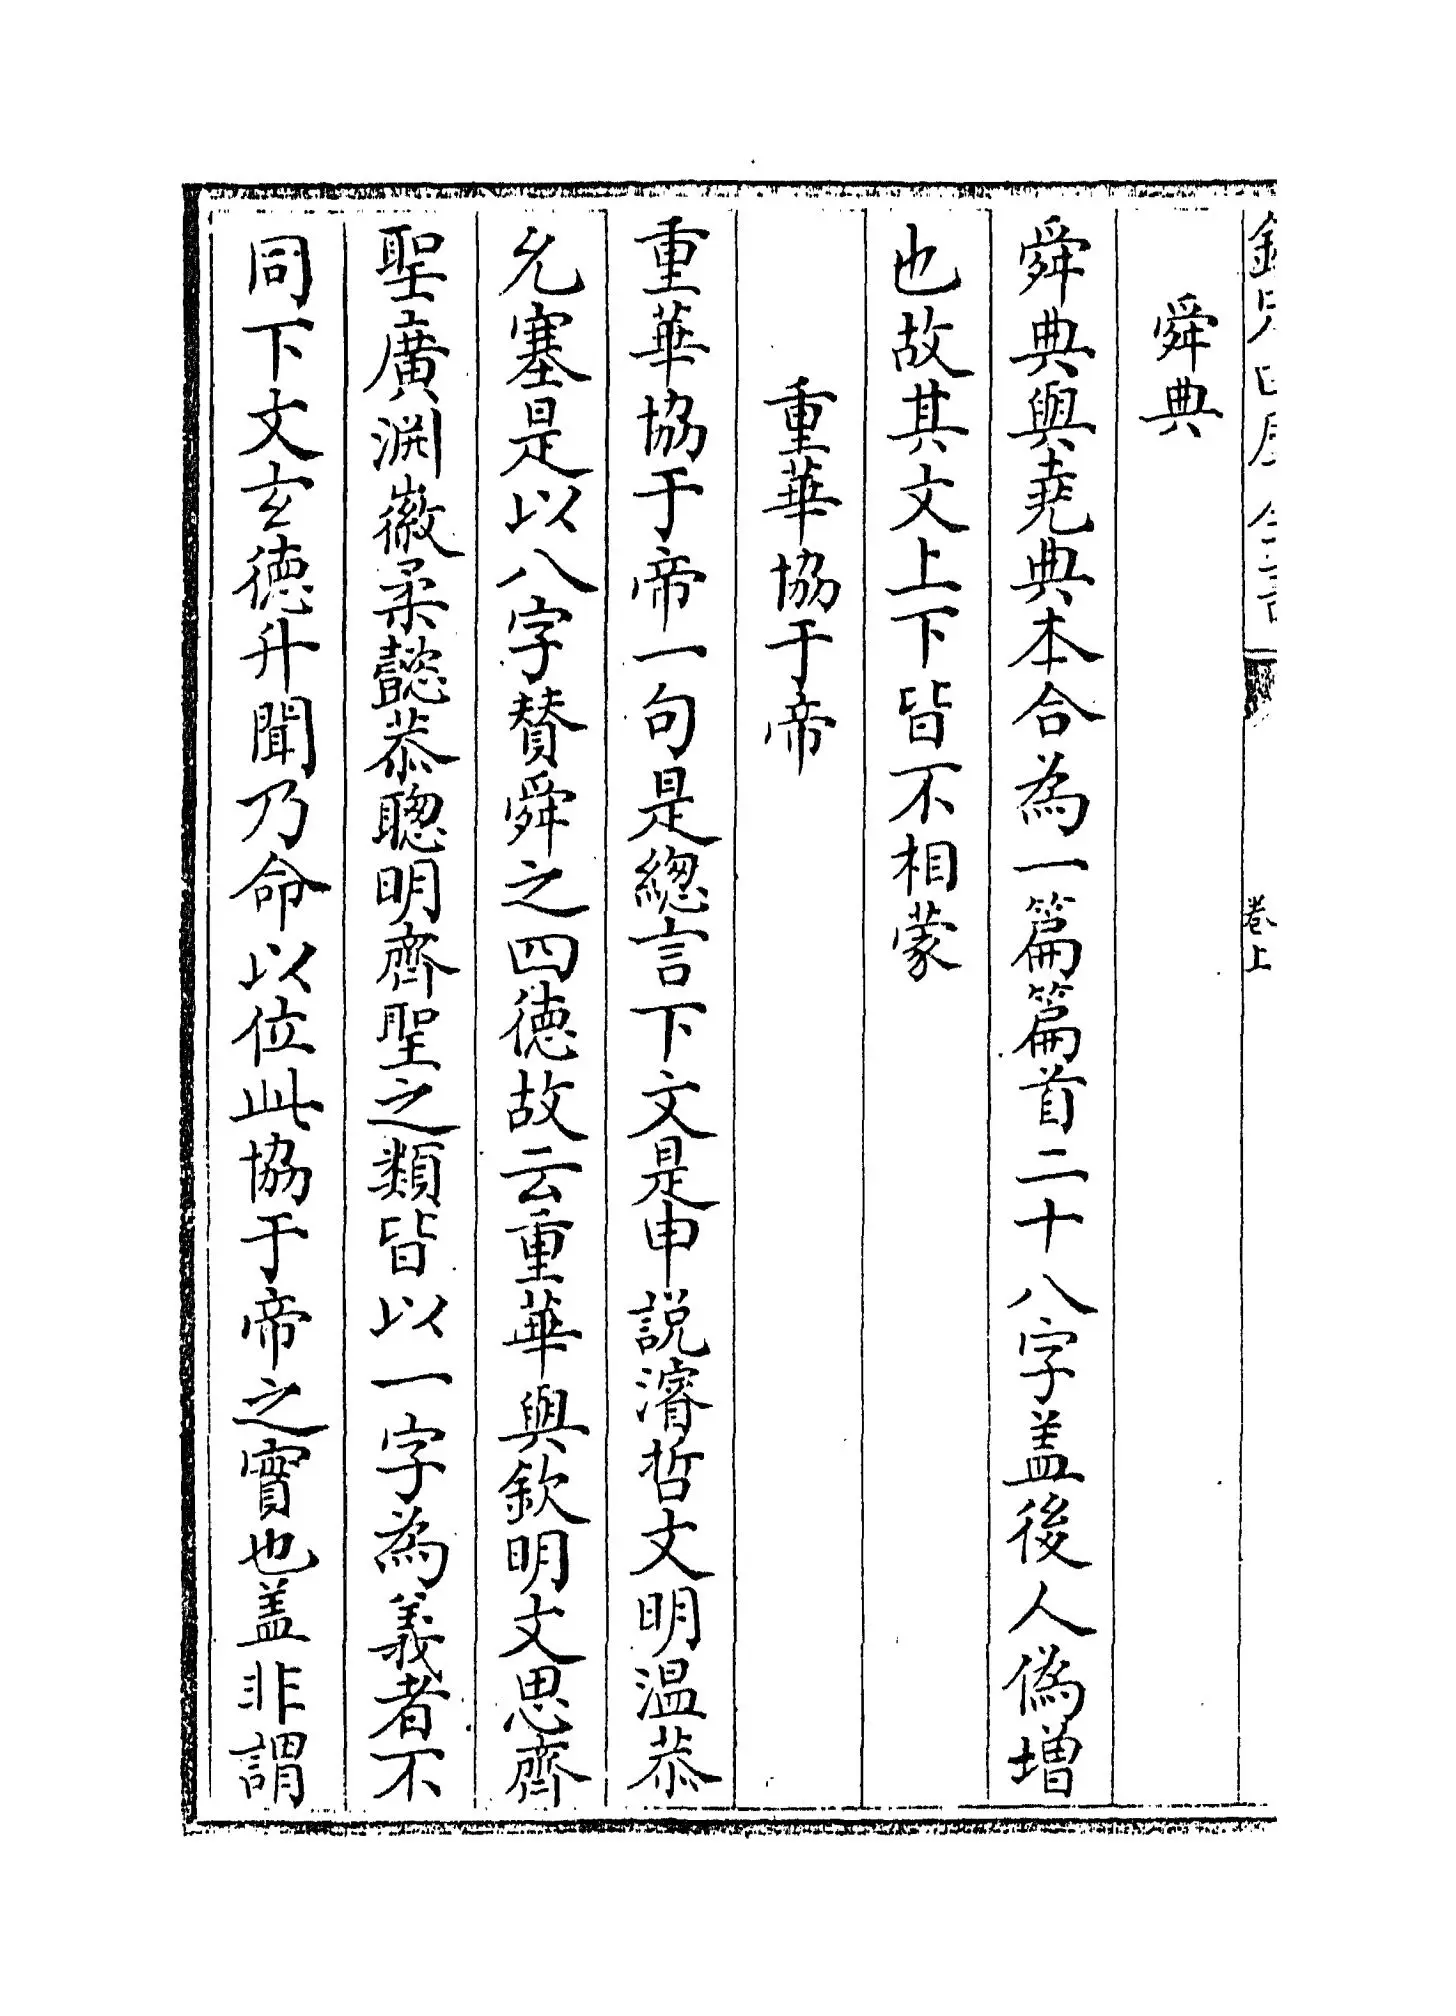 欽定四庫全書
卷上
舜典
舜典與堯典本合為一篇篇首二十八字盖後人偽增
也故其文上下皆不相蒙
重華協于帝
重華協于帝一句是總言下文是申説濬哲文明温恭
允塞是以八字賛舜之四徳故云重華與欽明文思齊
聖廣淵徽柔懿恭聰明齊聖之類皆以一字為義者不
同下文玄徳升聞乃命以位此協于帝之實也盖非謂